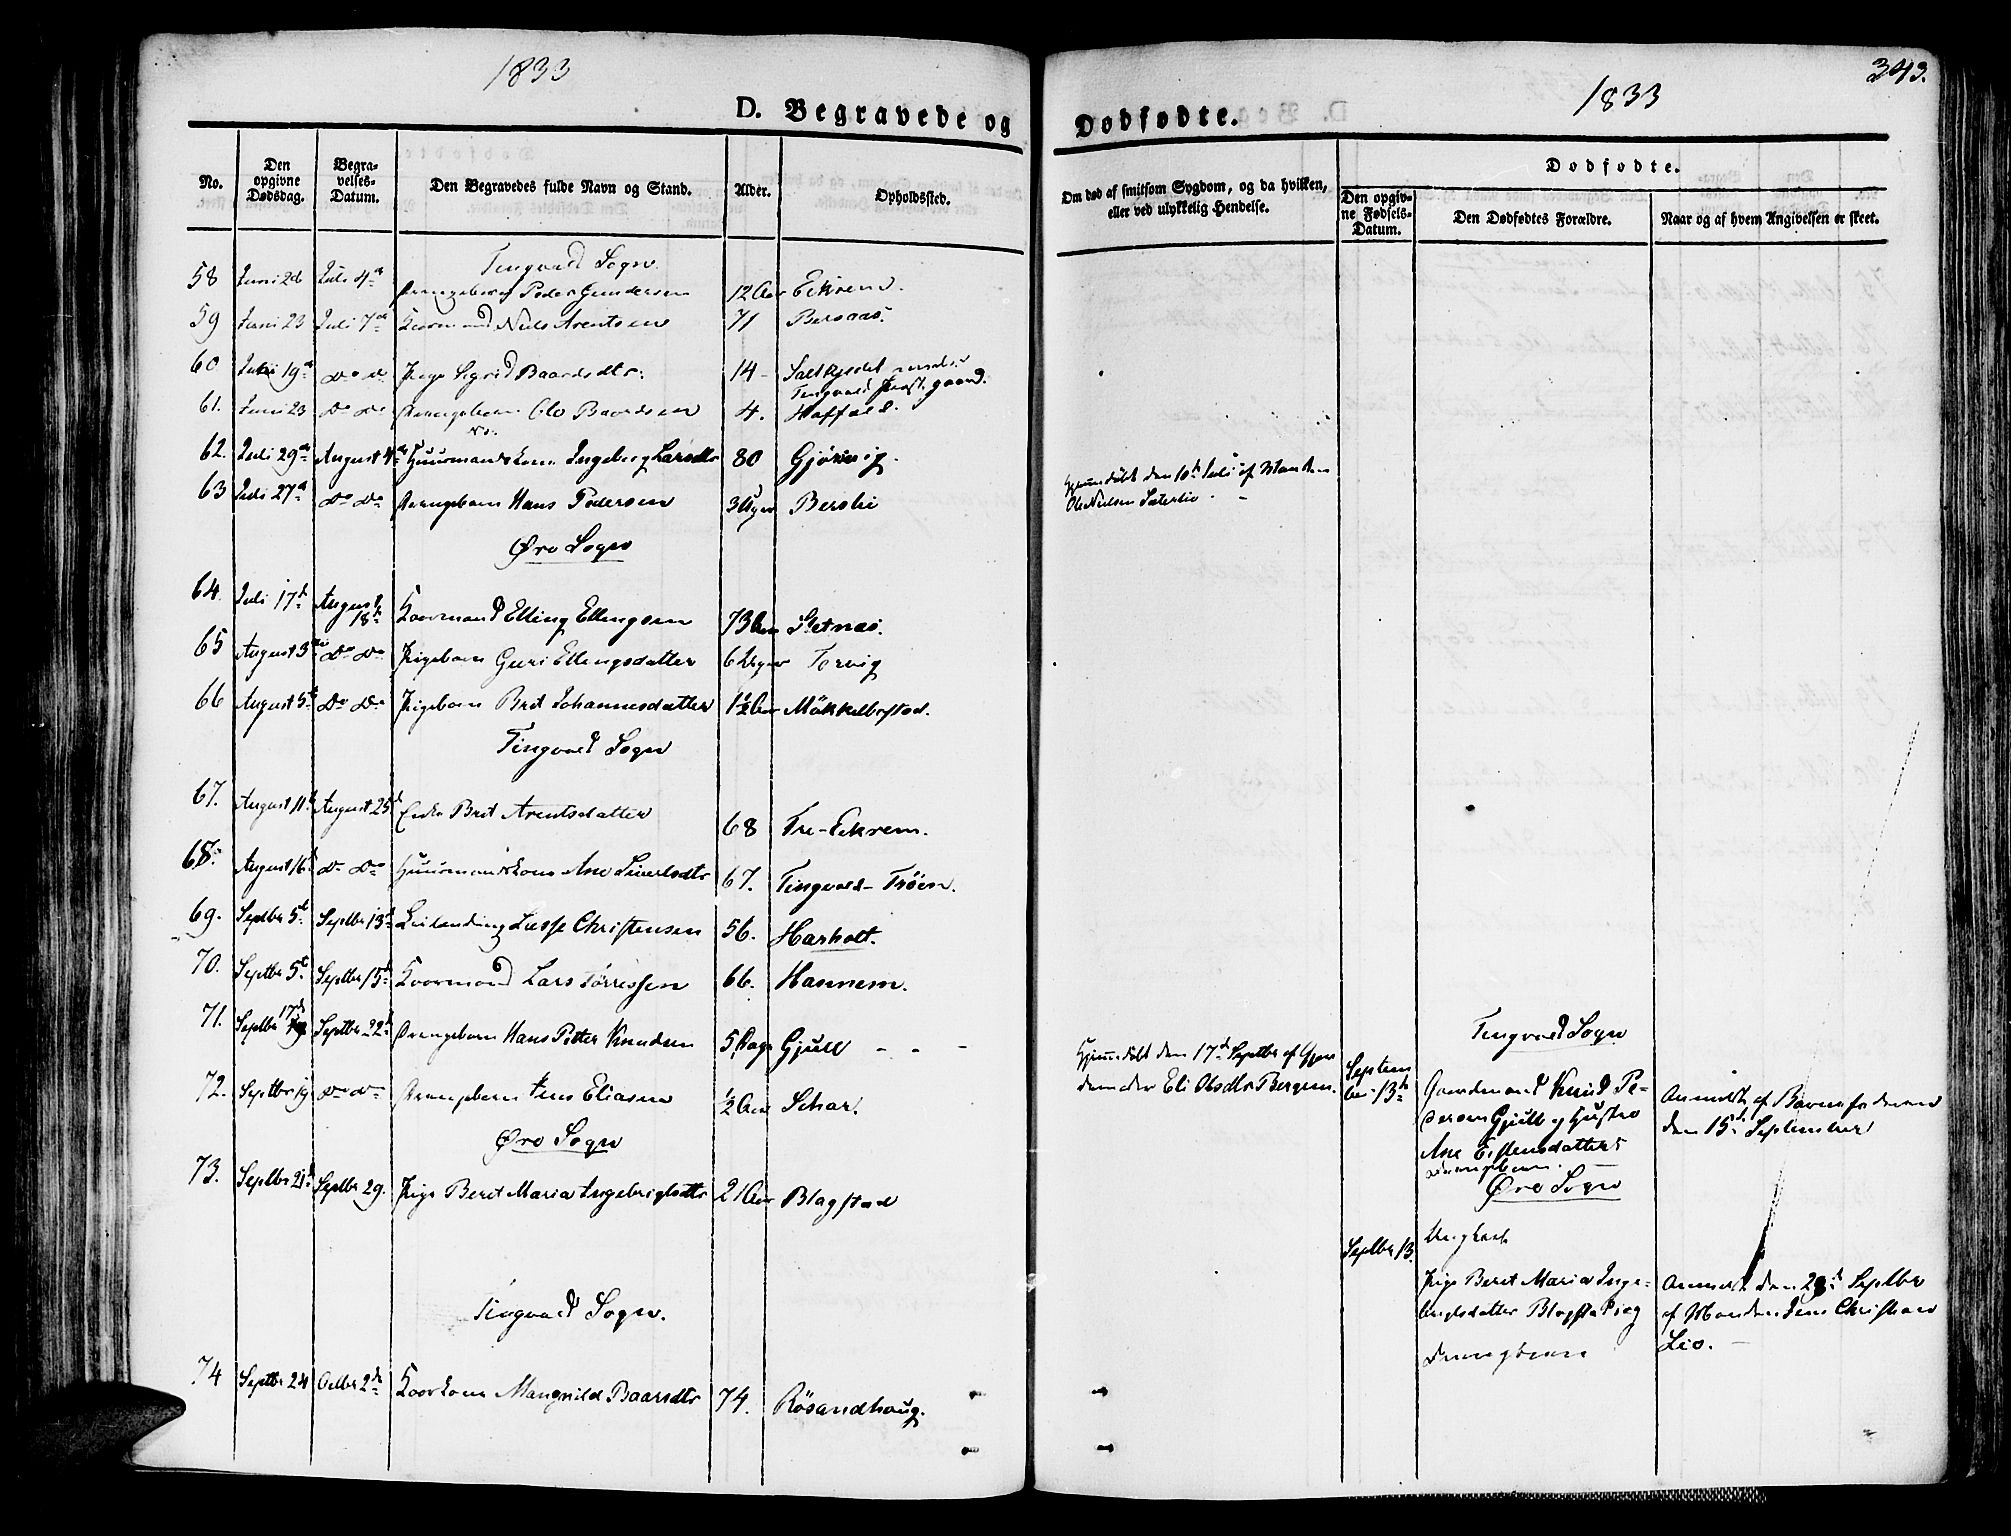 1833
D. Begravede og
No.
Den opgivne Dødsdag.
Begravelses-Datum.
Den Begravedes fulde Navn og Stand.
Alder.
Opholdssted.
Tingvold Sogn
58 Juni 26 Juli 4de Drengebarn Peder Gundersen 12 Aar Eikrem.
59 Juni 23 Juli 7de Koormand Niels Arentsen 71 Bersaas.
60 Juni 19de Do Do Pige Sigrid Baardsdtr: 14
Tingvold Præstgaard.
61. Juni 23 Do Do Drengebarn Ole Baardsen 4. Hoffald.
62. Juli 29de August 4de Huusmandskone Ingeborg Larsdtr 80 Gjørvig.
63 Juli 27de Do Do Drengebarn Hans Pedersen 3 Uger Berslie
Øre Sogn
64. Juli 17de August 18de Koormand Elling Ellingsen 73 Aar Setnæs.
65 August 3die Do Do Pigebarn Guri Ellingsdatter 6 Uger Torvig
66 August 5te Do Do Pigebarn Brit Johannesdatter 1½ Aar Mökkelbostad.
Tingvold Sogn
67. August 11te August 25de Enke Brit Arentsdatter 68 Tre-Eikrem.
68. August 16de Do Do Huusmandskone Ane Sivertsdtr 67. Tingvold-Trøen.
69. Septbr 5te Septbr 13de Leilænding Lasse Christensen 56. Harholt.
70. Septbr 5te Septbr 15de Koormand Lars Tørressen 66. Hannem.
71. Septbr 17de Septbr 22de Drengebarn Hans Petter Knudsen 5 Dage Gjull - - -
72. Septbr 19 Do Do Drengebarn Jens Eliasen ½ Aar Schar.
Øre Sogn
73. Septbr 21de Septbr 29. Pige Beret Maria Ingebrigtsdtr 21 Aar Blagstad
Tingvold Sogn.
74 Septbr 24 Octbr 2de Koorkone Mangnild Baarsdtr 74. Rösandhaug.
343.
1833
Dødfødte.
Om død af smitsom Sygdom, og da hvilken, eller ved ulykkelig Hendelse.
Dødfødte.
Den opgivne Fødsels-Datum.
Den Dødfødtes Forældre.
Naar og af hvem Angivelsen er skeet.
Hjemmedöbt den 10de Juli af Manden
Ole Nielsen Sæterlie - -
Hjemmedöbt den 17de Septbr af Gjor
demoder Eli Olsdtr Bergem.
Tingvold Sogn
Septembr 13de
Gaardmand Knud Pe-
dersen Gjull og Hustro
Ane Eistensdatters
Drengebarn.
Anmeldt af Barnefaderen
den 15de September
Øre Sogn
Septbr 13
Ungkarl
Pige Beret Maria Inge-
brigtsdatter Blagstad
Drengbarn
Anmeldt den 28de Septbr
af Manden Jens Christian
Lio. -